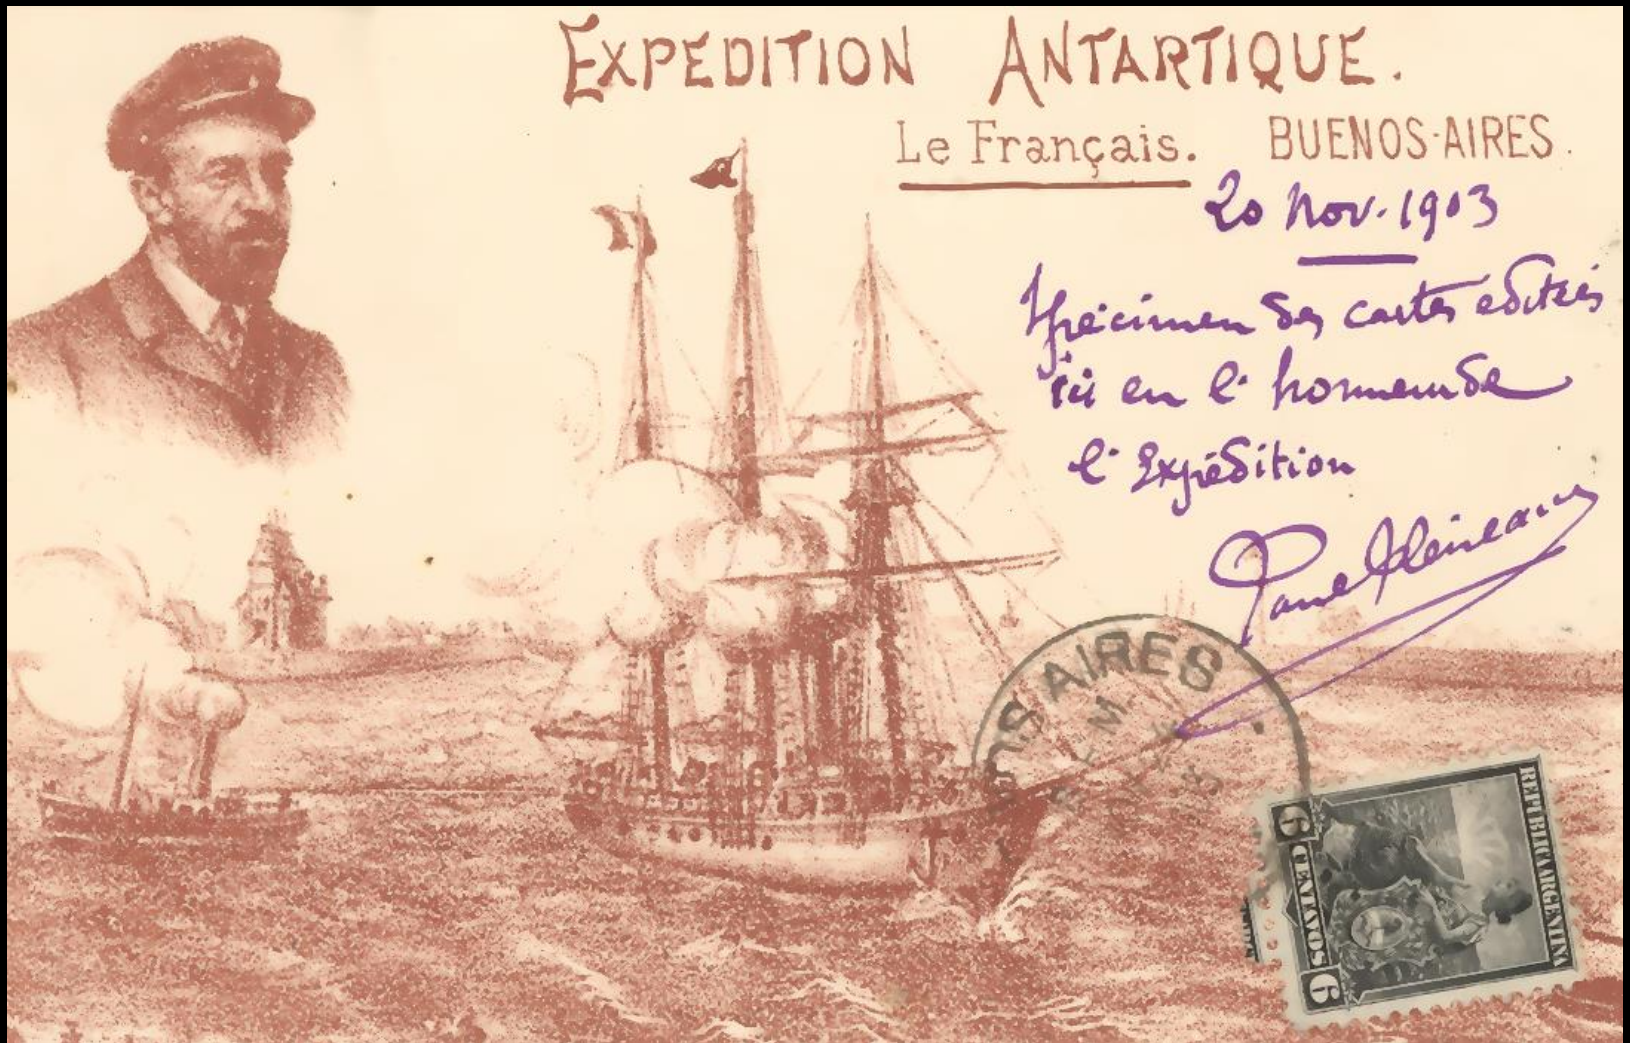 EXPEDITION ANTARTIQUE.
Le Français. BUENOS-AIRES.
20 Nov. 1903
Spécimen des cartes éditées
ici en l'honneur de
l'Expédition
Paul Pléneau
OS AIRES
REPUBLICA ARGENTINA
6 CENTAVOS 6